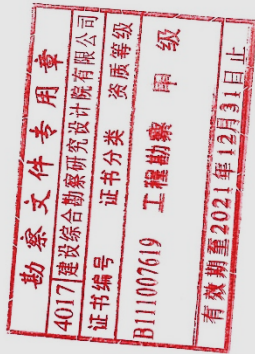 勘察文件专用章
4017 建设综合勘察研究设计院有限公司
证书编号 证书分类 资质等级
B111007619 工程勘察 甲级
有效期至2021年12月31日止